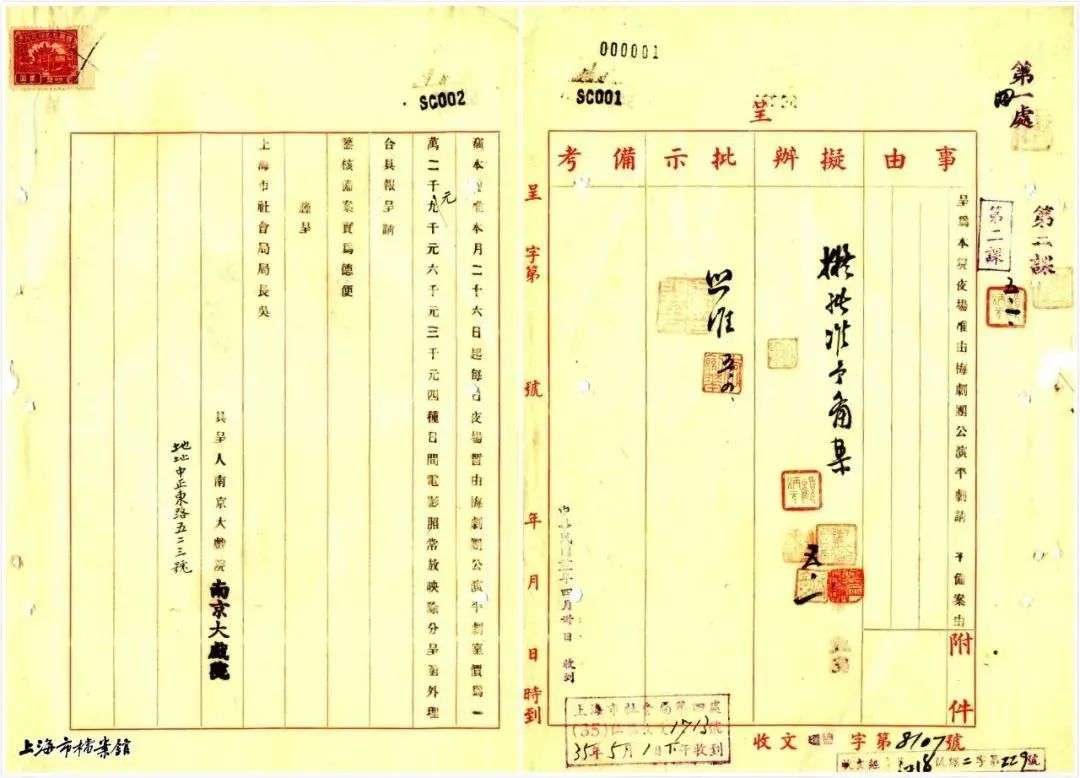 000001
SC001
呈
第一處
四
事由
擬辦
批示
備考
第二課
第二課
五.一.
呈爲本院夜場准由悔劇團公演平劇請 予備案由
附件
擬批准予备案
五.一
照准
五.四.
四月卅日 收到
呈 字第 號 年 月 日 時到
上海市社會局第四處
(35) 1713號
35年5月1日下午收到
收文 字第8107號
字第229號
SC002
竊本院准本月二十六日起每日夜場暫由悔劇團公演平劇座價爲一
萬二千元九千元六千元三千元四種日間電影照常放映除分呈外理
合具報呈請
鑒核備案實爲德便
謹呈
上海市社會局局長吳
具呈人南京大戲院
南京大戲院
地址中正東路五二三號
上海市檔案館